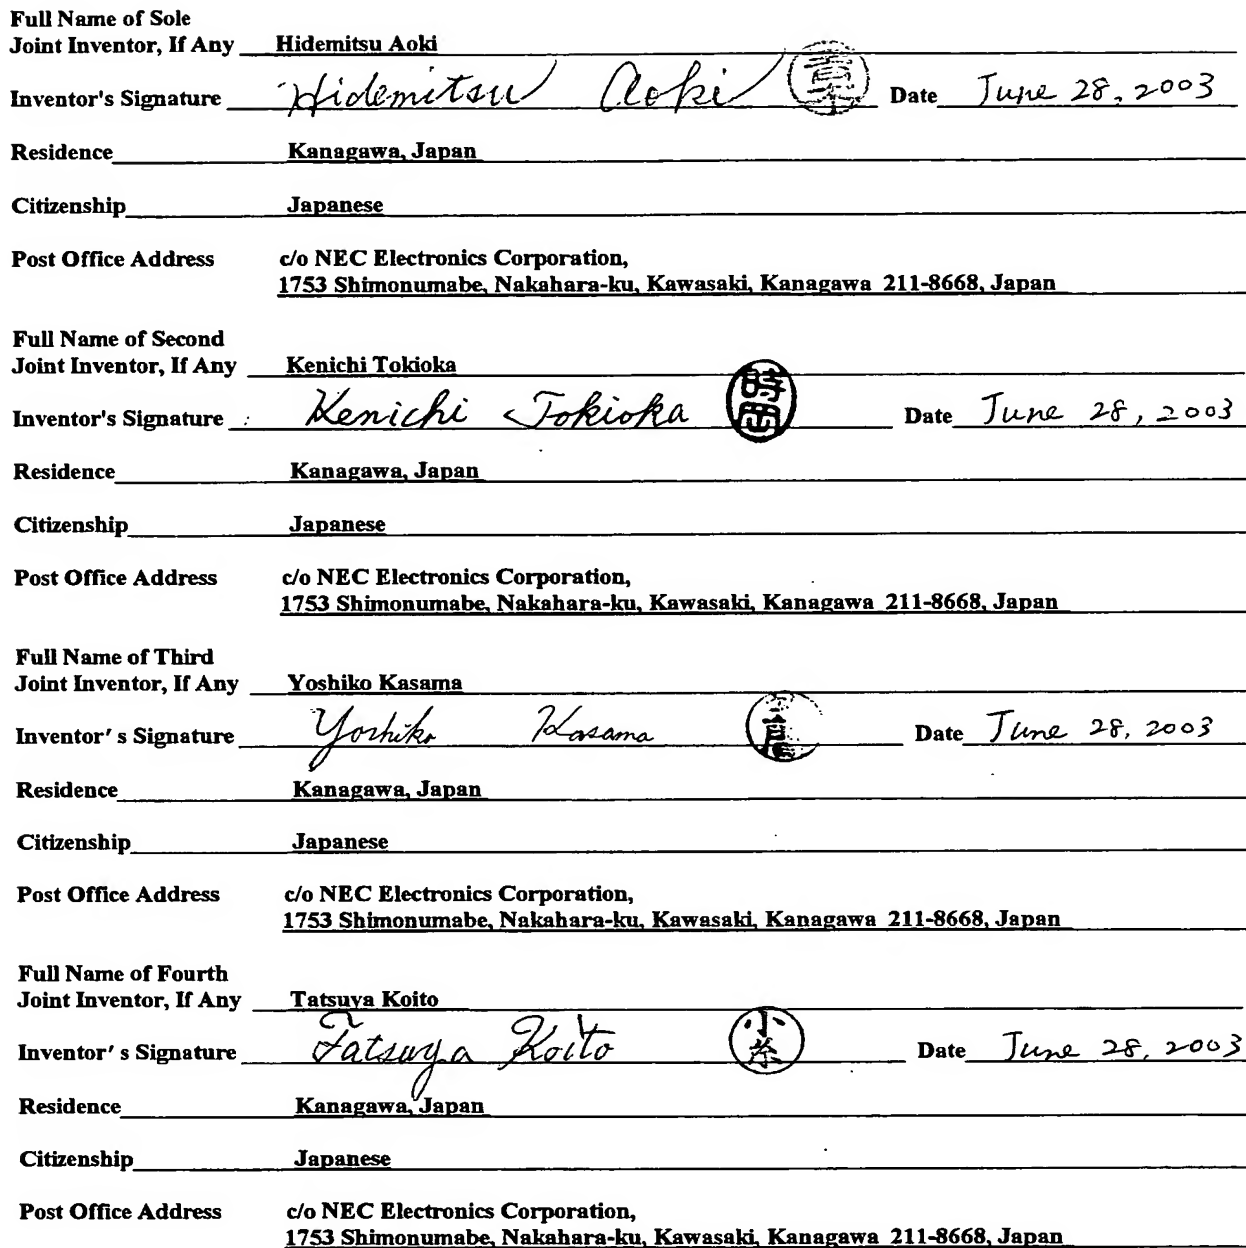 Full Name of Sole
Joint Inventor, If Any Hidemitsu Aoki
Inventor's Signature Hidemitsu Aoki Date June 28, 2003
Residence Kanagawa, Japan
Citizenship Japanese
Post Office Address c/o NEC Electronics Corporation,
1753 Shimonumabe, Nakahara-ku, Kawasaki, Kanagawa 211-8668, Japan
Full Name of Second
Joint Inventor, If Any Kenichi Tokioka
Inventor's Signature Kenichi Tokioka 時岡 Date June 28, 2003
Residence Kanagawa, Japan
Citizenship Japanese
Post Office Address c/o NEC Electronics Corporation,
1753 Shimonumabe, Nakahara-ku, Kawasaki, Kanagawa 211-8668, Japan
Full Name of Third
Joint Inventor, If Any Yoshiko Kasama
Inventor's Signature Yoshiko Kasama Date June 28, 2003
Residence Kanagawa, Japan
Citizenship Japanese
Post Office Address c/o NEC Electronics Corporation,
1753 Shimonumabe, Nakahara-ku, Kawasaki, Kanagawa 211-8668, Japan
Full Name of Fourth
Joint Inventor, If Any Tatsuya Koito
Inventor's Signature Tatsuya Koito 小糸 Date June 28, 2003
Residence Kanagawa, Japan
Citizenship Japanese
Post Office Address c/o NEC Electronics Corporation,
1753 Shimonumabe, Nakahara-ku, Kawasaki, Kanagawa 211-8668, Japan